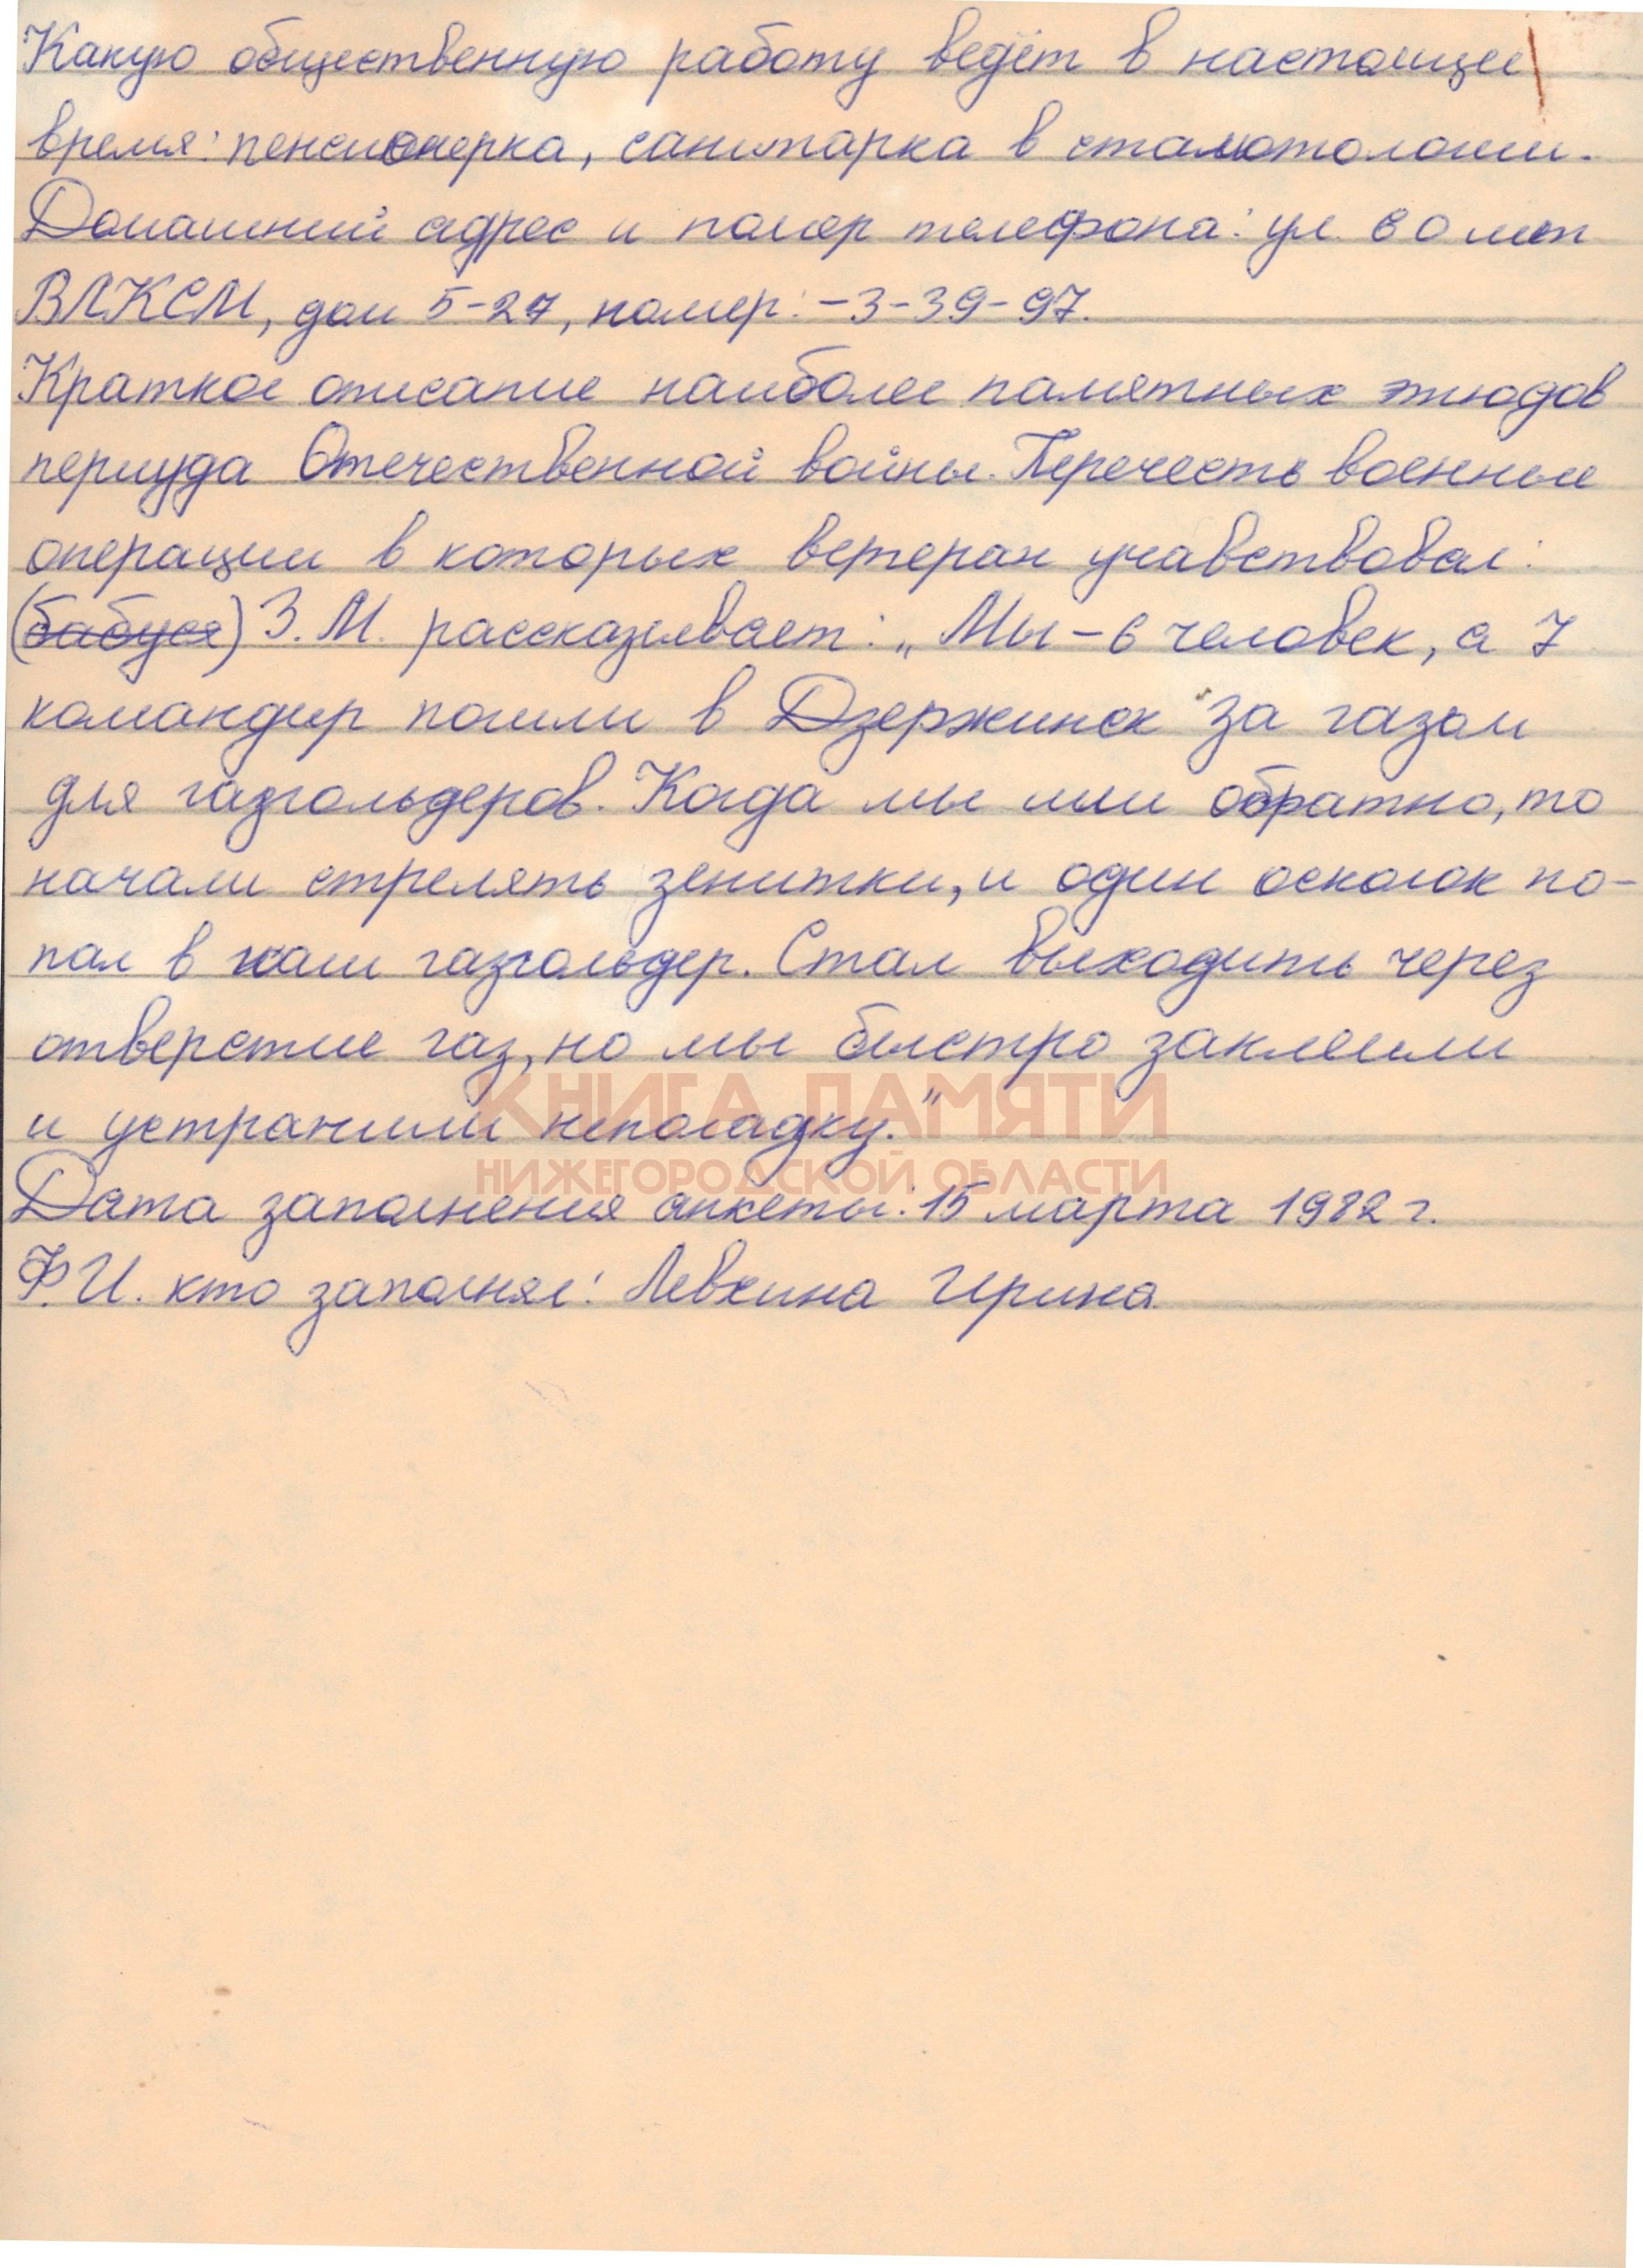 Какую общественную работу ведёт в настоящее
время: пенсионерка, санитарка в стаматологии.
Домашний адрес и номер телефона: ул. 60 лет
ВЛКСМ, дом 5-27, номер: -3-39-97.
Краткое описание наиболее памятных этюдов
периуда Отечественной войны. Перечесть военные
операции в которых ветеран учавствовал:
(бабуся) З.М. рассказывает: „Мы - 6 человек, а 7
командир пошли в Дзержинск за газом
для газгольдеров. Когда мы шли обратно, то
начали стрелять зенитки, и один осколок по-
пал в наш газгольдер. Стал выходить через
отверстие газ, но мы быстро заклеили
и устранили неполадку."
КНИГА ПАМЯТИ
НИЖЕГОРОДСКОЙ ОБЛАСТИ
Дата заполнения анкеты: 15 марта 1982 г.
Ф.И. кто заполнял: Левкина Ирина